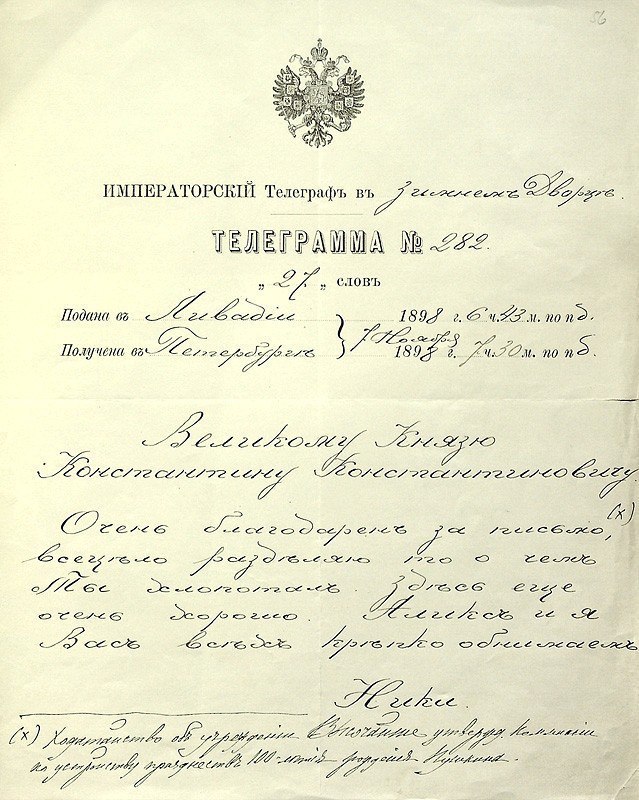 56
ИМПЕРАТОРСКІЙ Телеграфъ въ Зимнемъ Дворцѣ
ТЕЛЕГРАММА № 282.
„ 27 „ словъ
Подана въ Ливадіи 1898 г. 6 ч. 43 м. по пд.
7 Ноября
Получена въ Петербургѣ 1898 г. 7 ч. 30 м. по пд.
Великому Князю
Константину Константиновичу.
Очень благодаренъ за письмо, (х)
всецѣло раздѣляю то о чемъ
Ты хлопоталъ. Здѣсь еще
очень хорошо. Аликсъ и я
Васъ всѣхъ крѣпко обнимаемъ
Ники.
(х) Ходатайство объ учрежденіи Высочайше утвержд. Коммисіи
по устройству празднествъ 100-лѣтія рожденія Пушкина.